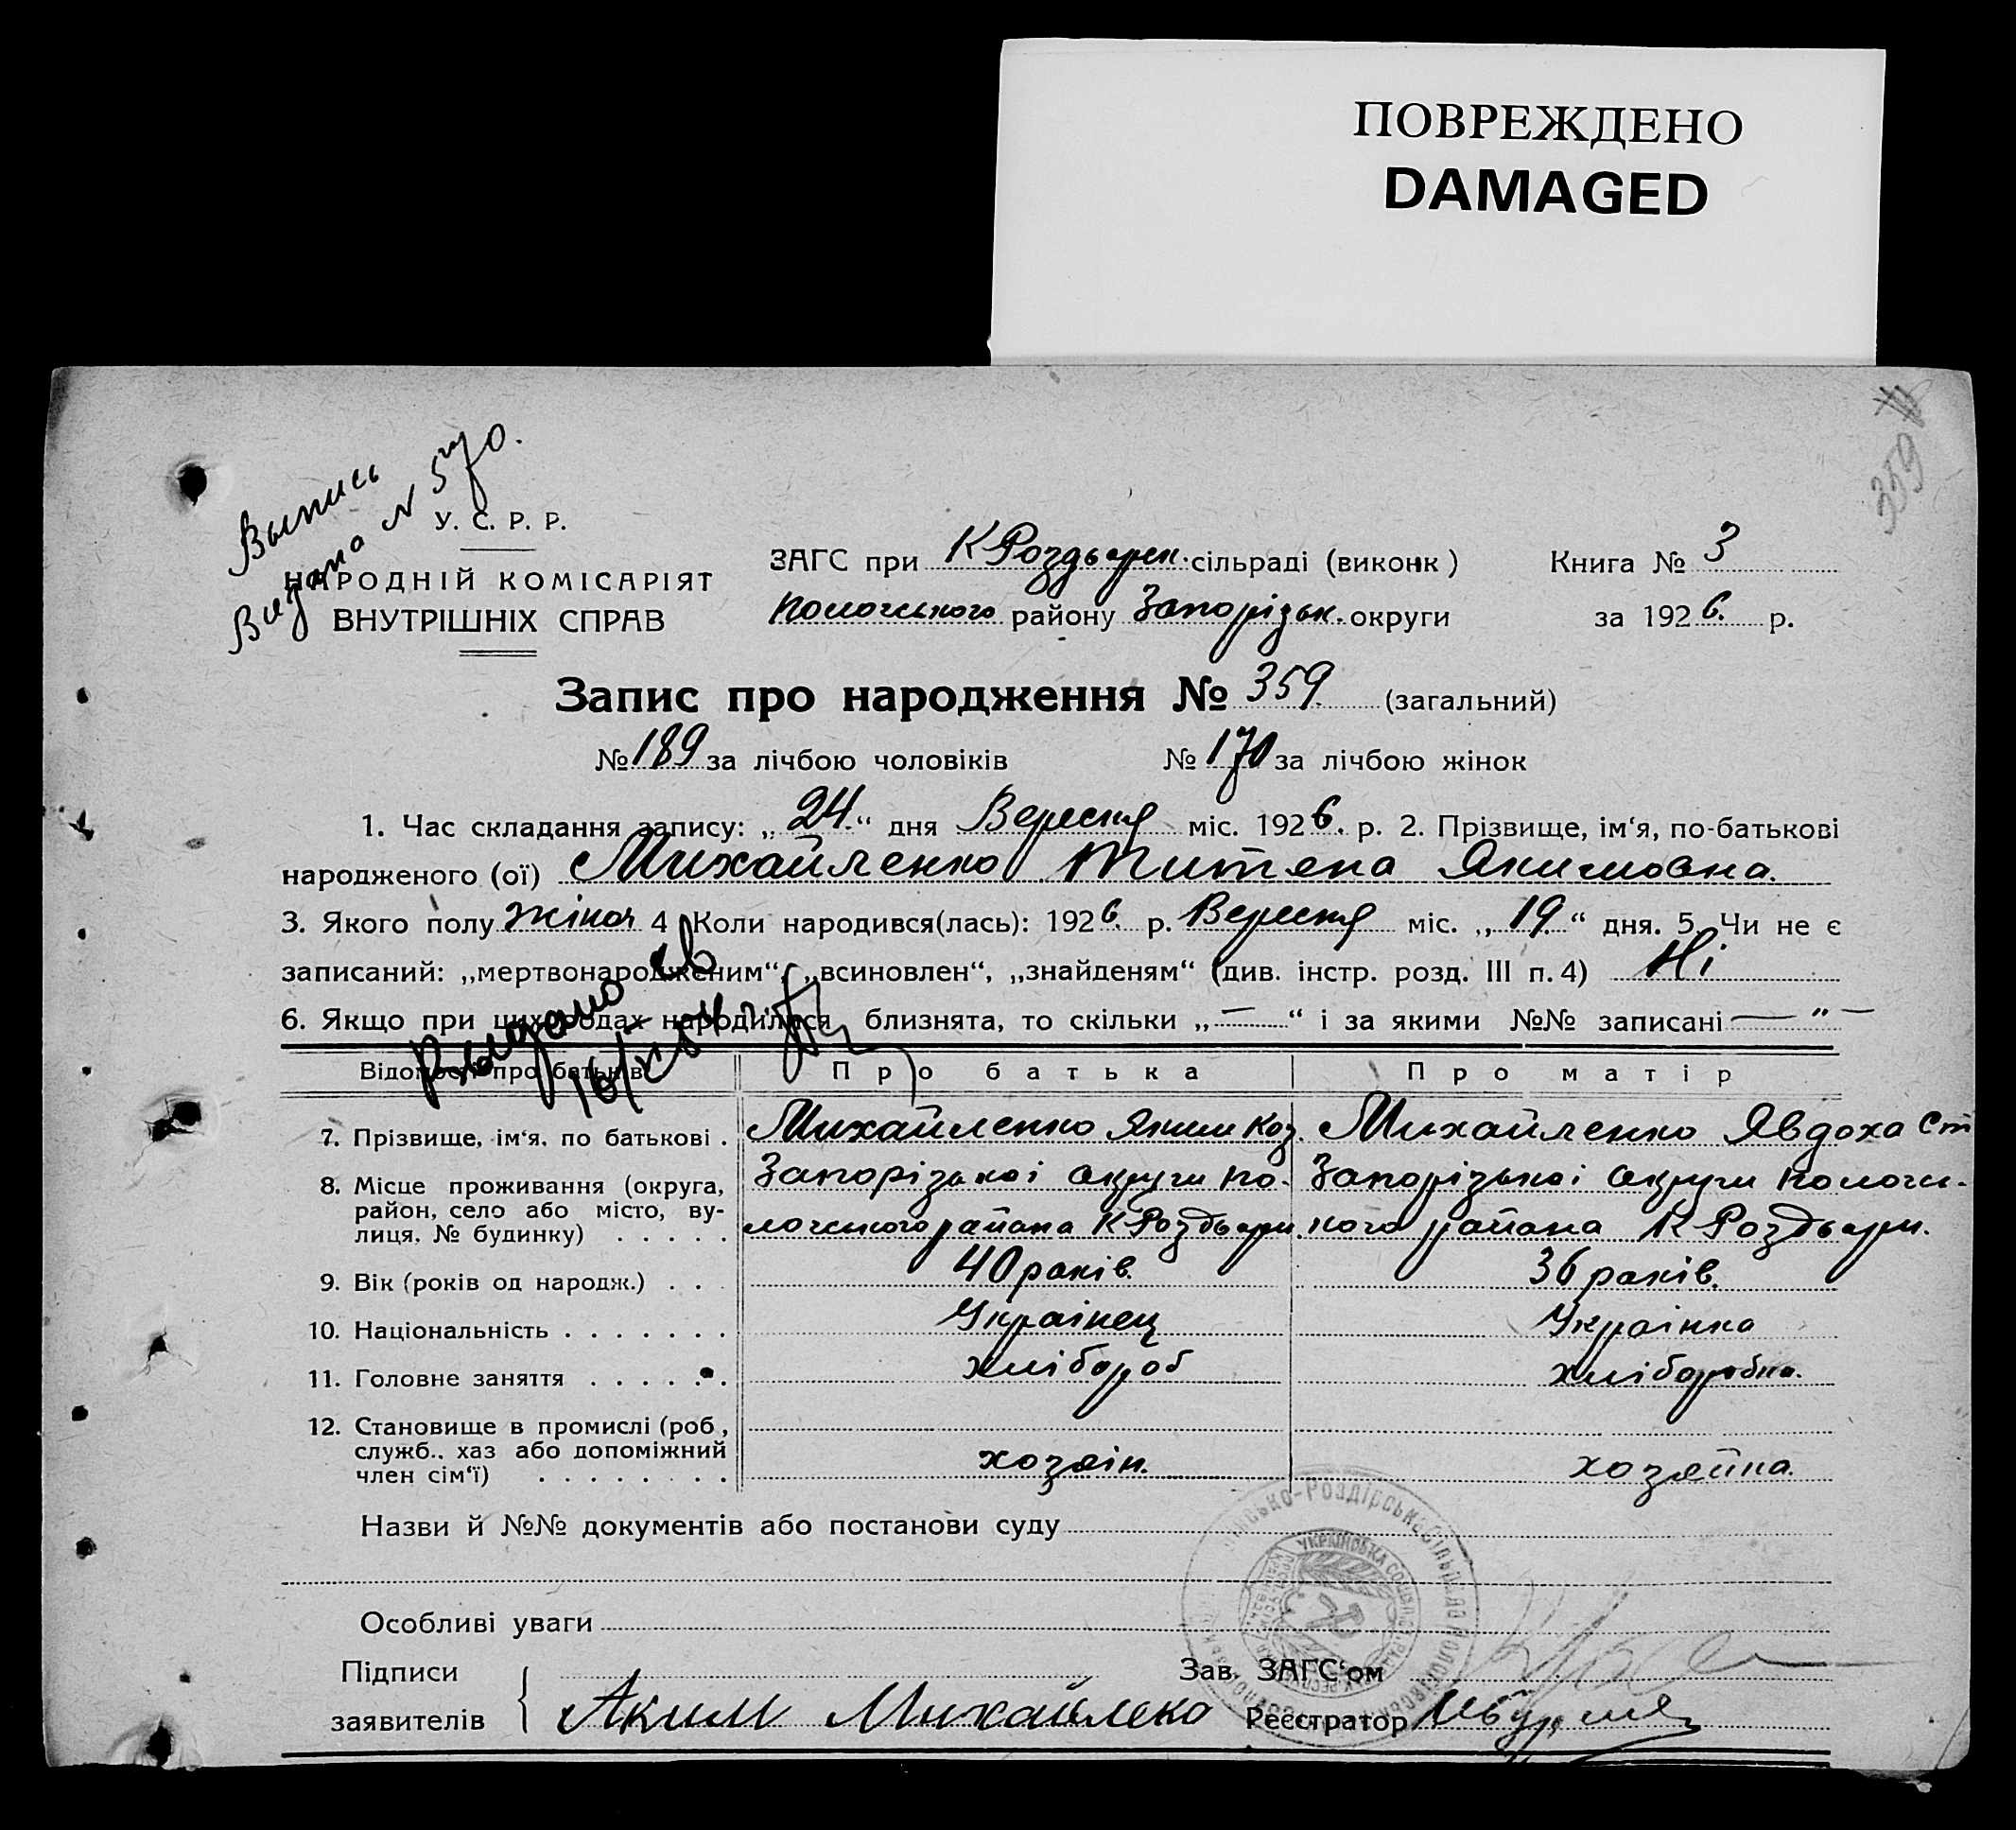 ПОВРЕЖДЕНО
DAMAGED
359
Выпись
Видана № 570.
У. С. Р. Р.
НАРОДНІЙ КОМІСАРІЯТ
ВНУТРІШНІХ СПРАВ
ЗАГС при К Роздърск. сільраді (виконк)
Пологського району Запорізьк. округи
Книга № 3
за 1926. р.
Запис про народження № 359. (загальний)
№ 189 за лічбою чоловіків № 170 за лічбою жінок
1. Час складання запису: „24.“ дня Вересня міс. 1926. р. 2. Прізвище, ім‘я, по-батькові
народженого (ої) Михайленко Якимовна.
3. Якого полу жіноч 4 Коли народився(лась): 1926. р. Вересня міс. „19.“ дня. 5. Чи не є
записаний: „мертвонародженим“, „всиновлен“, „знайденям“ (див. інстр. розд. III п. 4) Ні
6. Якщо при цих родах народилися близнята, то скільки „—“ і за якими №№ записані — " —
Выдано св
16/
Відомості про батьків
Про батька
Про матір
7. Прізвище, ім‘я, по батькові .
Михайленко Яким Коз.
Михайленко Явдоха Ст
8. Місце проживання (округа,
район, село або місто, ву-
лиця, № будинку) . . . . .
Запорізькоі округи По-
логського района К Роздърск.
Запорізькоі округи Пологсь-
кого района К Роздърск.
9. Вік (років од народж.) . . .
40 років.
36 років.
10. Національність . . . . . . .
Украінец
Украінка
11. Головне заняття . . . . . .
хлібороб
хліборобка.
12. Становище в промислі (роб,
служб.. хаз або допоміжний
член сім‘ї) . . . . . . . .
хозяін.
хозяйка.
Назви й №№ документів або постанови суду
Особливі уваги
Підписи
заявителів
Аким Михайлеко
Зав. ЗАГС‘ом
Реєстратор